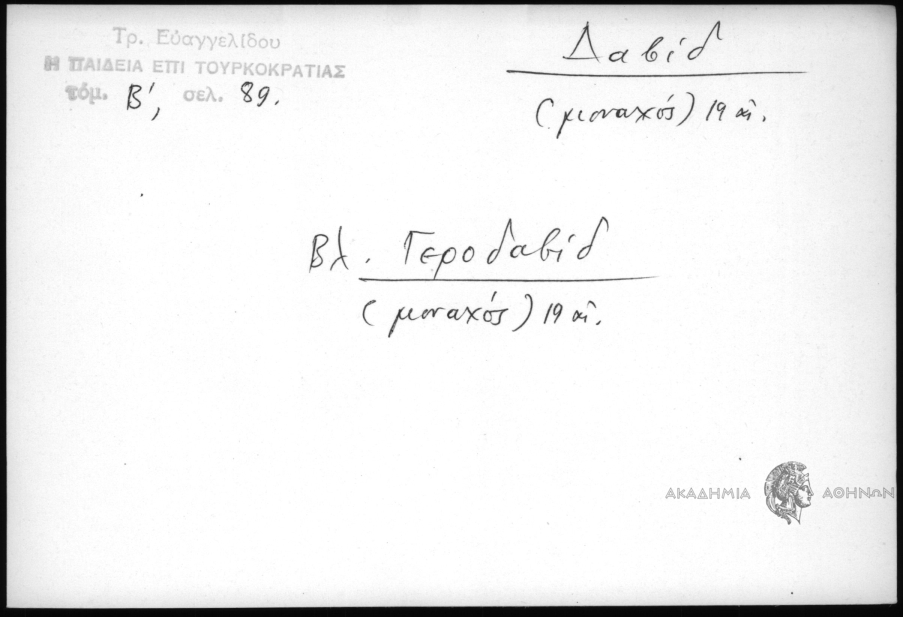 Τρ. Εὐαγγελίδου
Η ΠΑΙΔΕΙΑ ΕΠΙ ΤΟΥΡΚΟΚΡΑΤΙΑΣ
τόμ. Β', σελ. 89.
Δαβίδ
(μοναχός) 19 αἰ.
Βλ. Γεροδαβίδ
(μοναχός) 19 αἰ.
ΑΚΑΔΗΜΙΑ ΑΘΗΝΩΝ